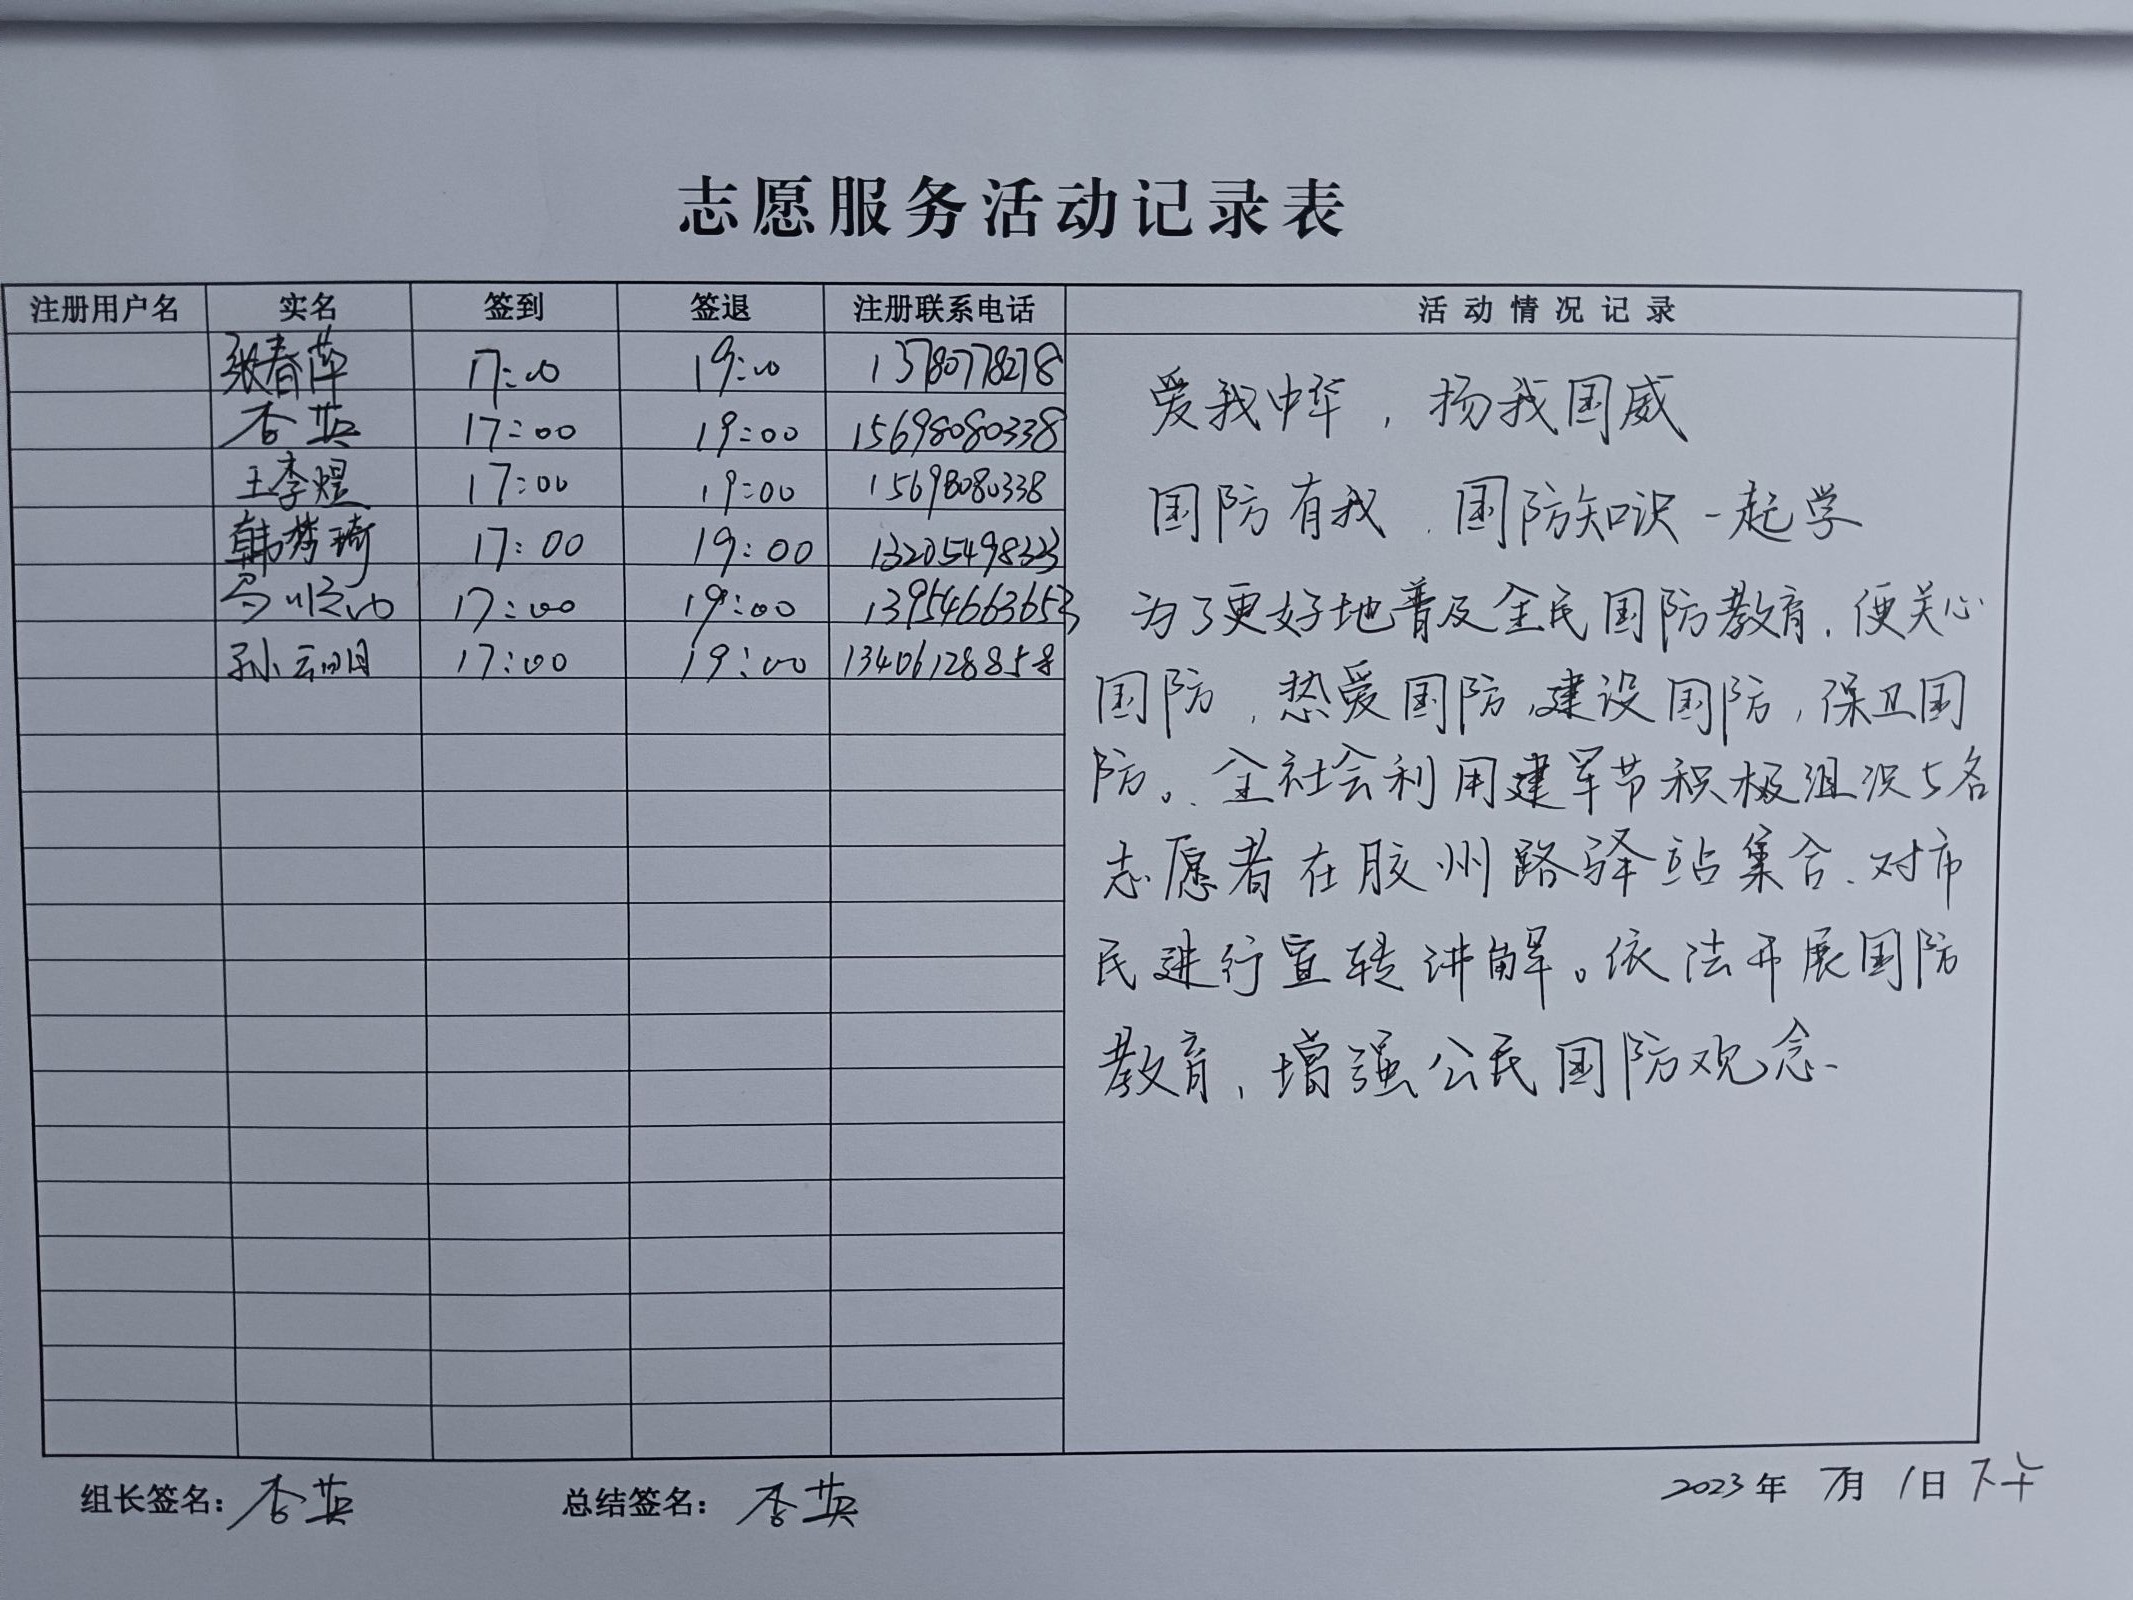 志愿服务活动记录表
注册用户名 实名 签到 签退 注册联系电话 活动情况记录
张春萍 17:00 19:00 13780778278
杏英 17:00 19:00 15698080338
王李煜 17:00 19:00 15698080338
韩梦琦 17:00 19:00 13205498323
17:00 19:00 13954663653
孙云明 17:00 19:00 13406128858
爱我中华，扬我国威
国防有我，国防知识一起学
为了更好地普及全民国防教育，使关心
国防，热爱国防，建设国防，保卫国
防。全社会利用建军节积极组织5名
志愿者在胶州路驿站集合、对市
民进行宣转讲解。依法开展国防
教育，增强公民国防观念.
组长签名：杏英 总结签名：杏英 2023年 7月 1日 下午